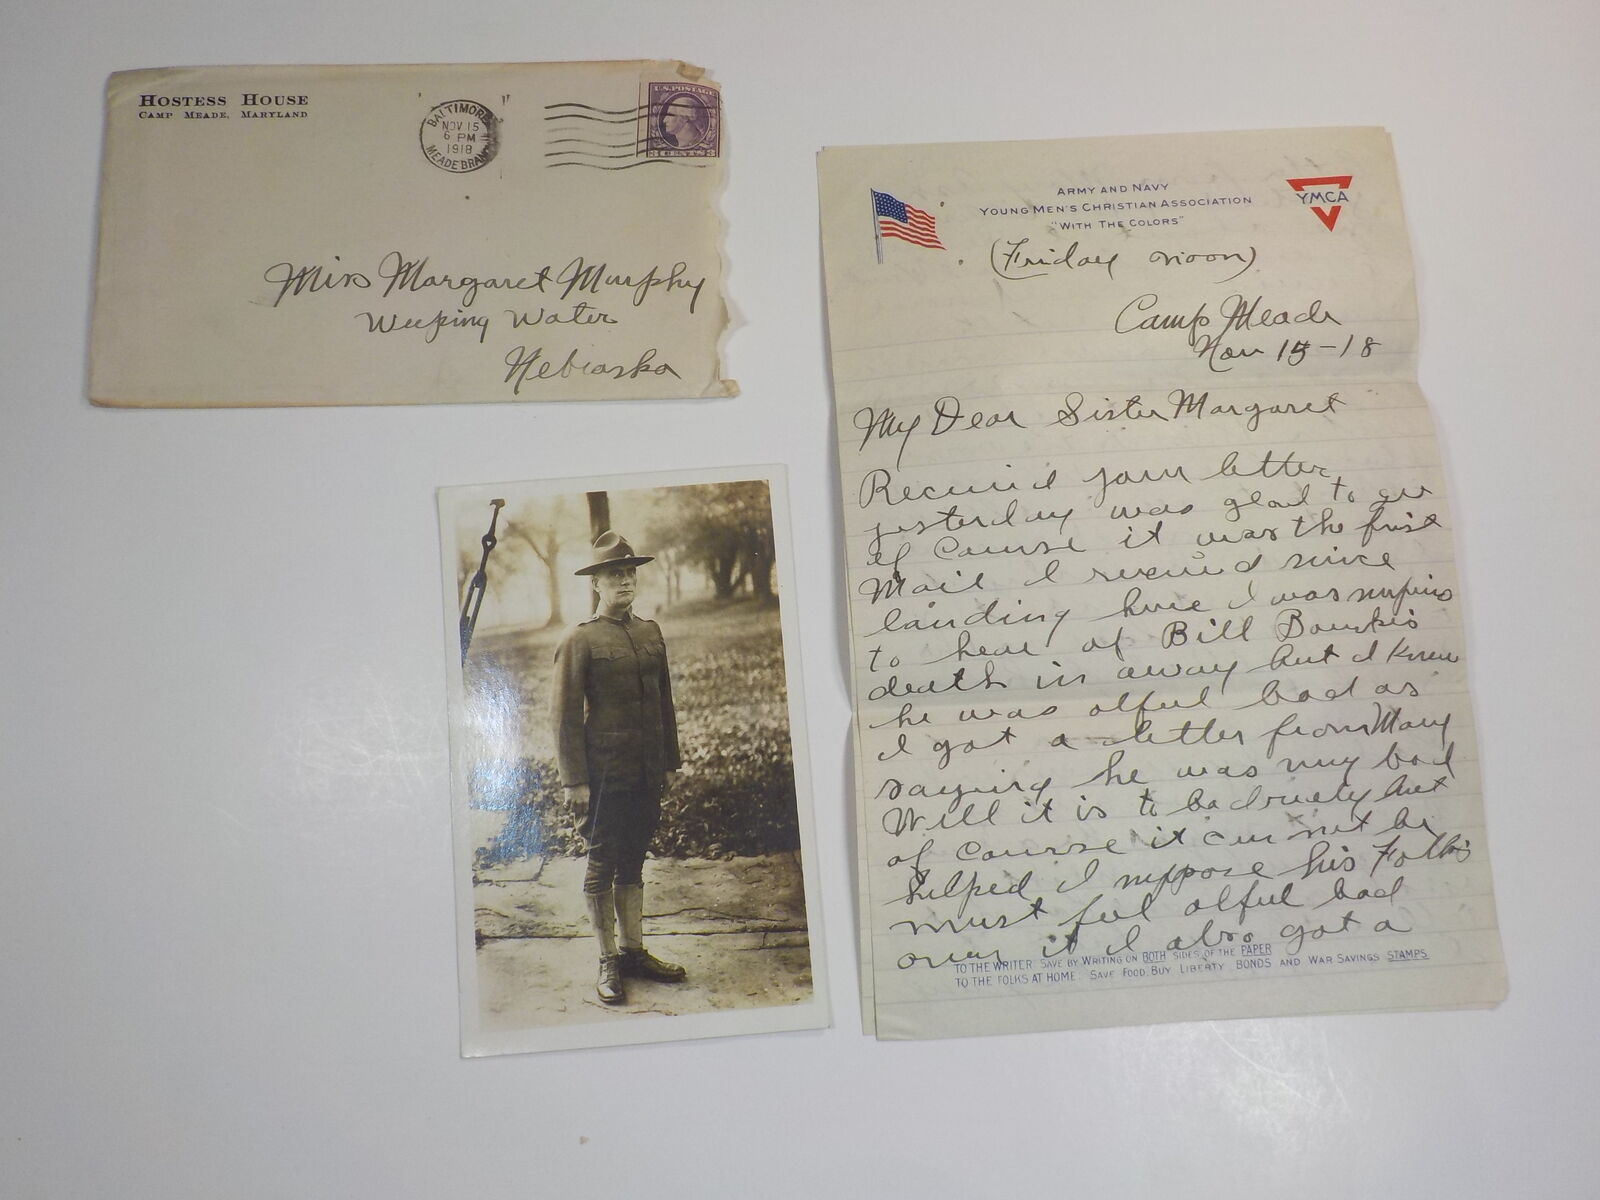 HOSTESS HOUSE
CAMP MEADE, MARYLAND
BALTIMORE
NOV 15
6 PM
1918
MEADE BRANCH
U.S. POSTAGE
3 CENTS 3
Miss Margaret Murphy
Weeping Water
Nebraska
ARMY AND NAVY
YOUNG MEN'S CHRISTIAN ASSOCIATION
"WITH THE COLORS"
YMCA
(Friday noon)
Camp Meade
Nov 15-18
My Dear Sister Margaret
Received your letter
yesterday was glad to
of Course it was the first
Mail I received since
landing here I was
to hear of Bill
death in away but I Knew
he was alful bad as
I got a letter from Mary
saying he was very bad
Well it is to bad but
of Course it can not be
helped I suppose his Folks
must feel alful bad
over it I also got a
TO THE WRITER: SAVE BY WRITING ON BOTH SIDES OF THE PAPER
TO THE FOLKS AT HOME: SAVE FOOD, BUY LIBERTY BONDS AND WAR SAVINGS STAMPS